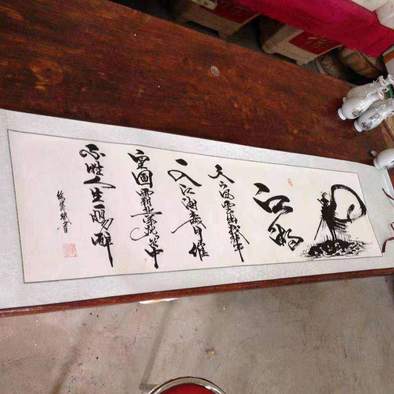 江湖
天下风云出我辈
一入江湖岁月催
皇图霸业谈笑中
不胜人生一场醉